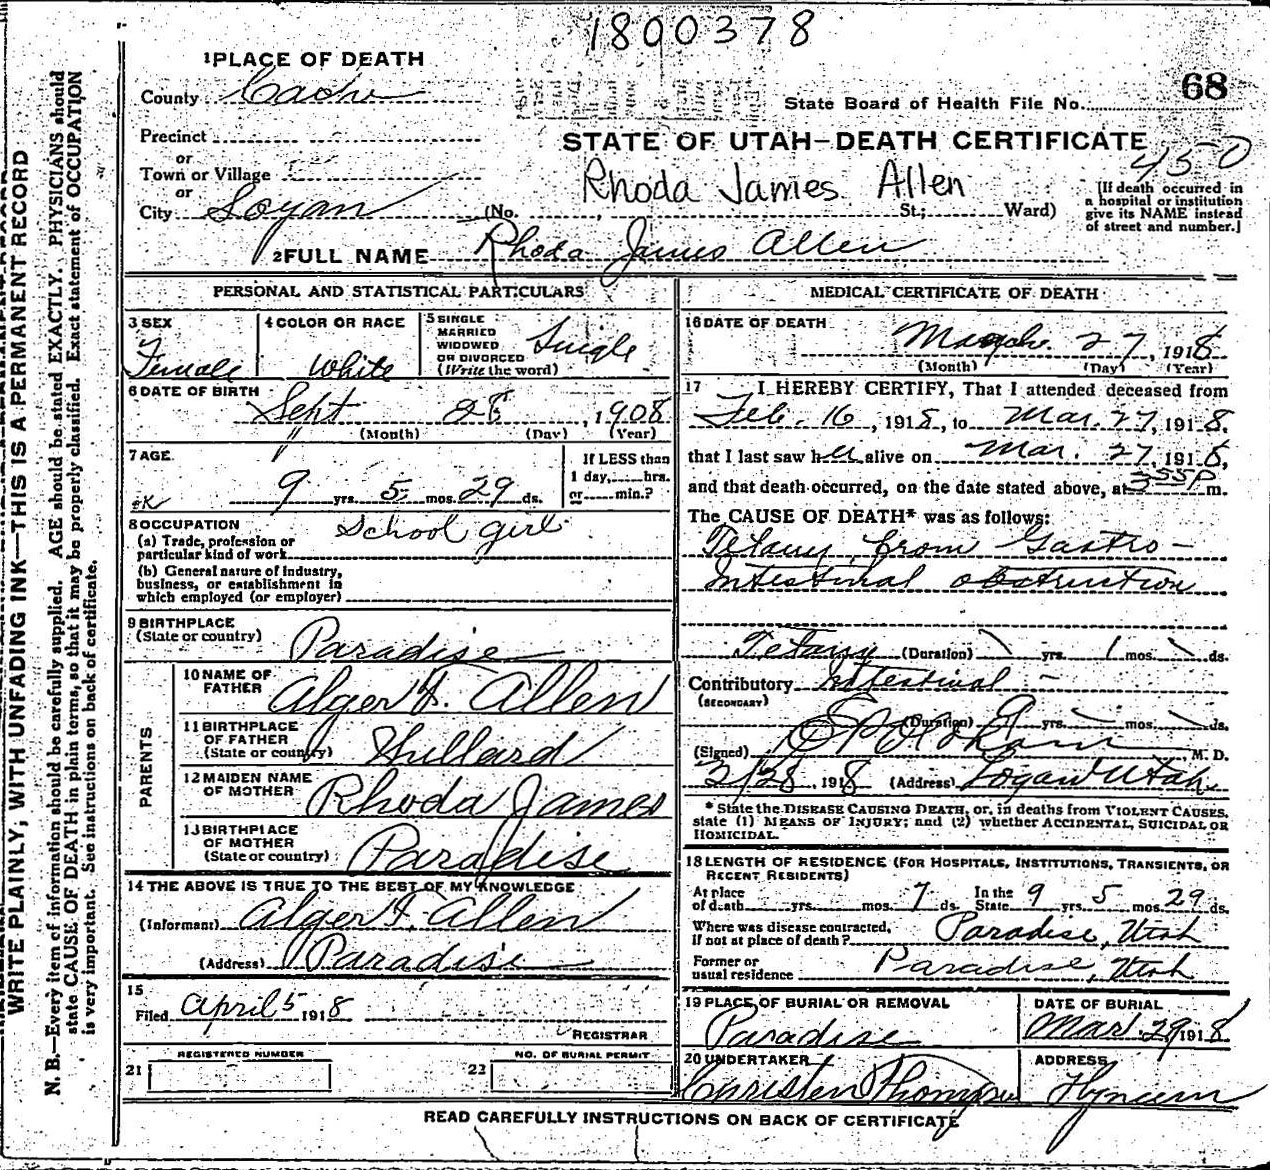 1800378
1 PLACE OF DEATH
68
County Cache
State Board of Health File No.
Precinct
STATE OF UTAH—DEATH CERTIFICATE
or
450
Town or Village
Rhoda James Allen
or
[If death occurred in
a hospital or institution
give its NAME instead
of street and number.]
City Logan (No. St.; Ward)
2 FULL NAME Rhoda James Allen
PERSONAL AND STATISTICAL PARTICULARS
3 SEX
Female
4 COLOR OR RACE
White
5 SINGLE
MARRIED
WIDOWED
OR DIVORCED
(Write the word)
Single
6 DATE OF BIRTH
Sept 28, 1908
(Month) (Day) (Year)
7 AGE
9 yrs. 5 mos. 29 ds.
If LESS than
1 day, hrs.
or min.?
OK
8 OCCUPATION
(a) Trade, profession or
particular kind of work
School girl
(b) General nature of industry,
business, or establishment in
which employed (or employer)
9 BIRTHPLACE
(State or country)
Paradise
PARENTS
10 NAME OF
FATHER
Alger F. Allen
11 BIRTHPLACE
OF FATHER
(State or country)
12 MAIDEN NAME
OF MOTHER
Rhoda James
13 BIRTHPLACE
OF MOTHER
(State or country)
Paradise
14 THE ABOVE IS TRUE TO THE BEST OF MY KNOWLEDGE
(Informant) Alger F. Allen
(Address) Paradise
15
Filed April 5 1918
REGISTRAR
REGISTERED NUMBER
21
NO. OF BURIAL PERMIT
22
MEDICAL CERTIFICATE OF DEATH
16 DATE OF DEATH
March 27, 1918
(Month) (Day) (Year)
17 I HEREBY CERTIFY, That I attended deceased from
Feb. 16, 1918, to Mar. 27, 1918.
that I last saw her alive on Mar. 27, 1918,
and that death occurred, on the date stated above, at 355P m.
The CAUSE OF DEATH* was as follows:
Tetany from Gastro-
Intestinal obstruction
Tetany (Duration) yrs. 1 mos. ds.
Contributory Intestinal -
(SECONDARY)
(Duration) 9 yrs. mos. ds.
(Signed) M. D.
2/28, 1918 (Address) Logan Utah.
* State the DISEASE CAUSING DEATH, or, in deaths from VIOLENT CAUSES,
state (1) MEANS OF INJURY; and (2) whether ACCIDENTAL, SUICIDAL OR
HOMICIDAL.
18 LENGTH OF RESIDENCE (FOR HOSPITALS, INSTITUTIONS, TRANSIENTS, OR
RECENT RESIDENTS)
At place
of death yrs. mos. 7 ds.
In the
State 9 yrs. 5 mos. 29 ds.
Where was disease contracted,
if not at place of death? Paradise, Utah
Former or
usual residence Paradise, Utah
19 PLACE OF BURIAL OR REMOVAL
Paradise
DATE OF BURIAL
Mar. 29, 1918
20 UNDERTAKER
ADDRESS
Hyrum
READ CAREFULLY INSTRUCTIONS ON BACK OF CERTIFICATE
WRITE PLAINLY, WITH UNFADING INK—THIS IS A PERMANENT RECORD
N. B.—Every item of information should be carefully supplied. AGE should be stated EXACTLY. PHYSICIANS should
state CAUSE OF DEATH in plain terms, so that it may be properly classified. Exact statement of OCCUPATION
is very important. See instructions on back of certificate.